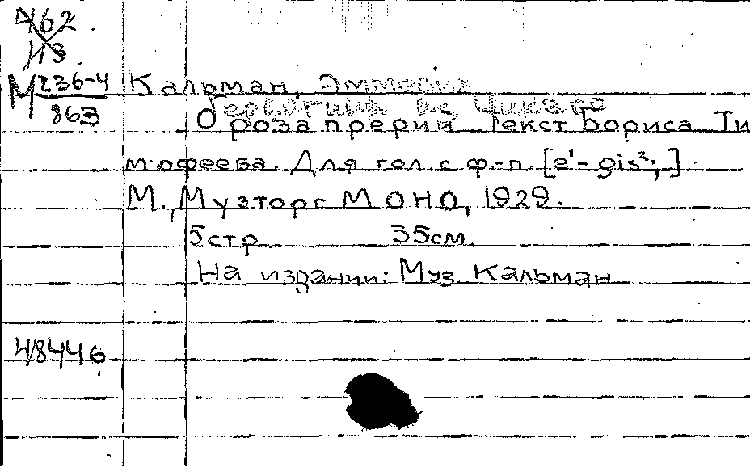 462.
113.
М 236-4
863
Кальман, Эммерих
Герцогиня из Чикаго
О роза прерий Текст Бориса Ти
мофеева. Для гол. с ф.-п. [e¹- gis²;]
М., Музторг МОНО, 1929.
5 стр. 35 см.
На издании: Муз. Кальман
48446